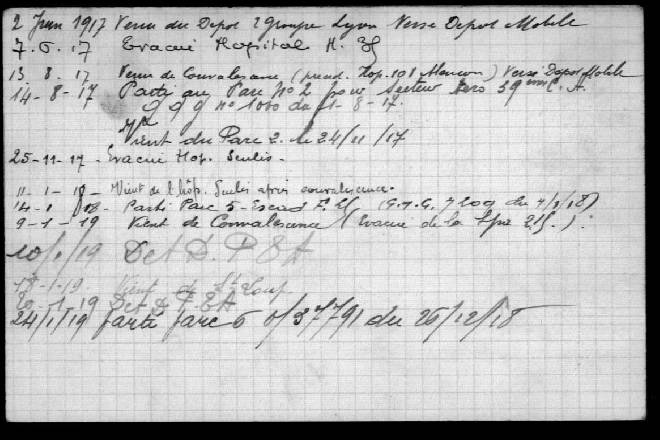 2 Juin 1917 Venu du Depot 2 groupe Lyon Verse Depot Mobile
7.6.17 Evacué Hopital H.
13.8.17 Venu de Convalescence ( Hop. 101 Alencon) Versé Depot Mobile
14-8-17 Parti au Parc N°2 pour Secteur C. A.
G Q G n° 1080 du 1-8-17.
Vient du Parc 2. le 24/11/17
25-11-17 - Evacué Hop. Senlis -
11-1-18 - Vient de l'hôp. Senlis après convalescence.
14-1 18 - Parti Parc 5 - Escad (G.Q.G. 7209 du 4/1/18)
9-1-19 Vient de Convalescence (Evacué de la Spa )
10/1/19 Det D. P & A
18-1-19. Vient de St Loup
20-1-19 Det D P & A
24/1/19 parti parc 6 o/37791 du 26/12/18